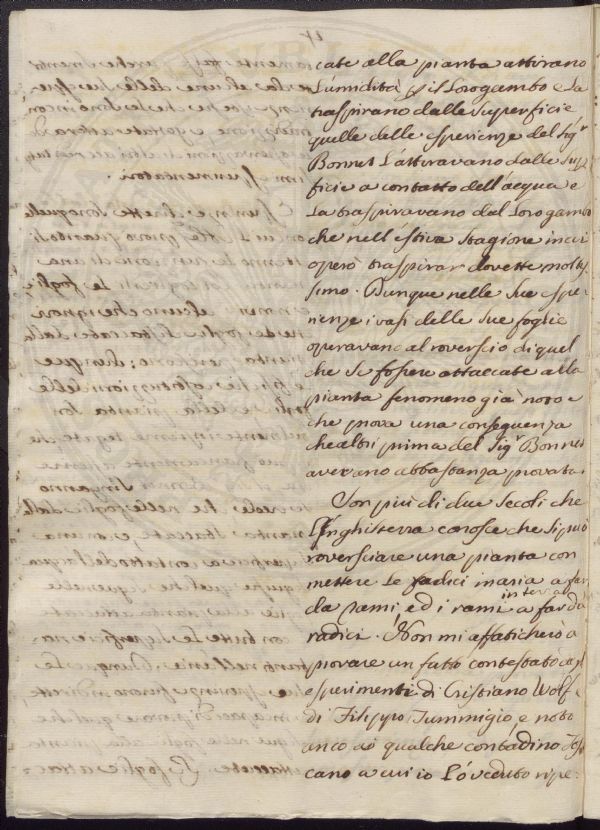 cate alla pianta attirano
L'umidità p il Lorogambo e La
traspirano dalle superficie
quelle delle esperienze del Sig.r
Bonnet L'attiravano dalle sup
ficie a contatto dell'acqua e
La traspiravano dal Lorogambo
che nell'estiva stagione in cui
operò traspirar dovette moltis
simo. Dunque nelle Sue espe
rienze i vasi delle Sue foglie
operavano al roverscio di quel
che se fossero attaccate alla
pianta fenomeno già noto e
che prova una conseguenza
che altri prima del Sig.r Bonnet
averano abbastanza provata.
Son più di due Secoli che
L'Inghilterra conosce che si può
roversciare una pianta con
mettere Le radici in aria a far
da rami, ed i rami in terra a far da
radici. Non mi affaticherò a
provare un fatto contestato dagl
esperimenti di Cristiano Wolf-
di Filippo Tummigio, e noto
anco ad qualche contadino Tos
cano a cui io L'ò veduto ripe=